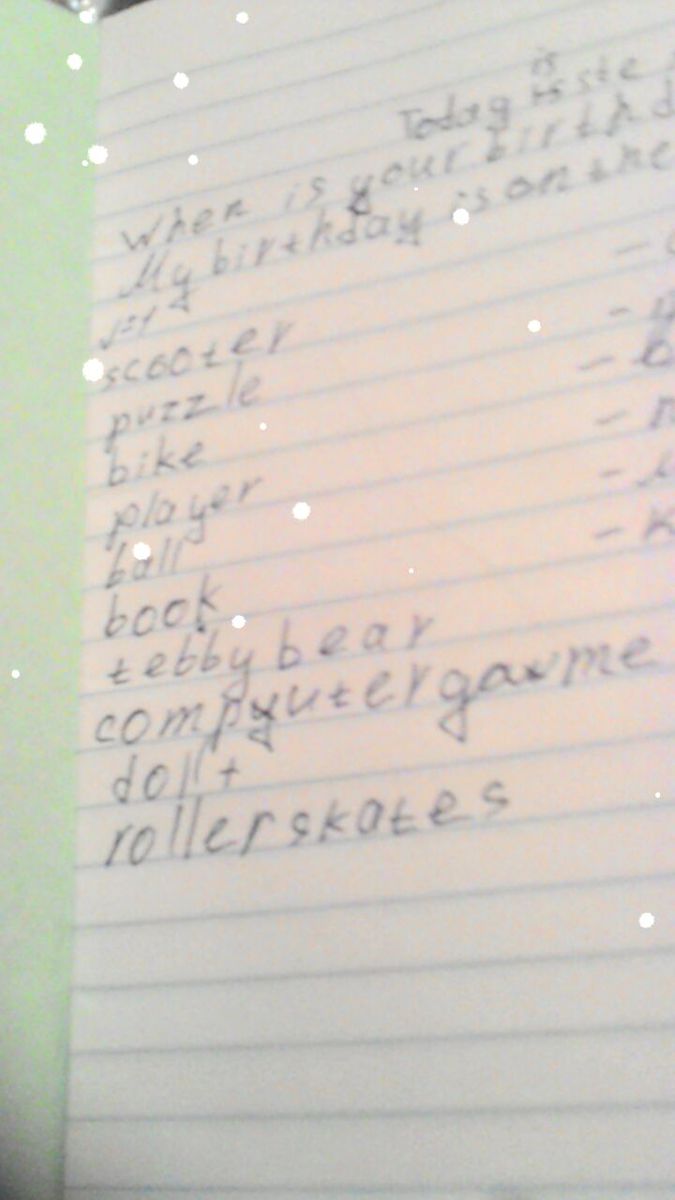 Today is
When is your birthd
My birthday is on the
scooter –
puzzle –
bike –
player –
ball –
book –
tebby bear
compyuter game
doll
roller skates